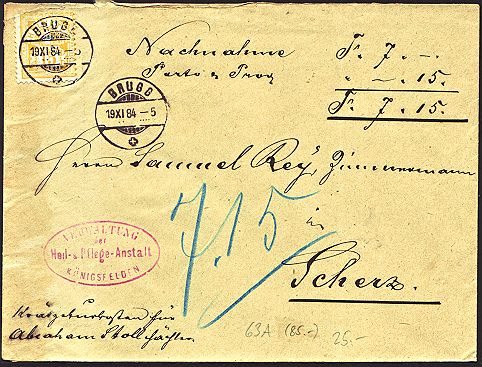 BRUGG
19 XI 84 – 5
BRUGG
19 XI 84 – 5
Nachnahme Fr. 7. –.
Porto & Prov. " –. 15.
Fr. 7. 15.
Herrn Samuel Rey, Zimmermann
in
Scherz.
7.15
VERWALTUNG
der
Heil- & Pflege-Anstalt
KÖNIGSFELDEN
für
Abraham
63A (85.-) 25.-